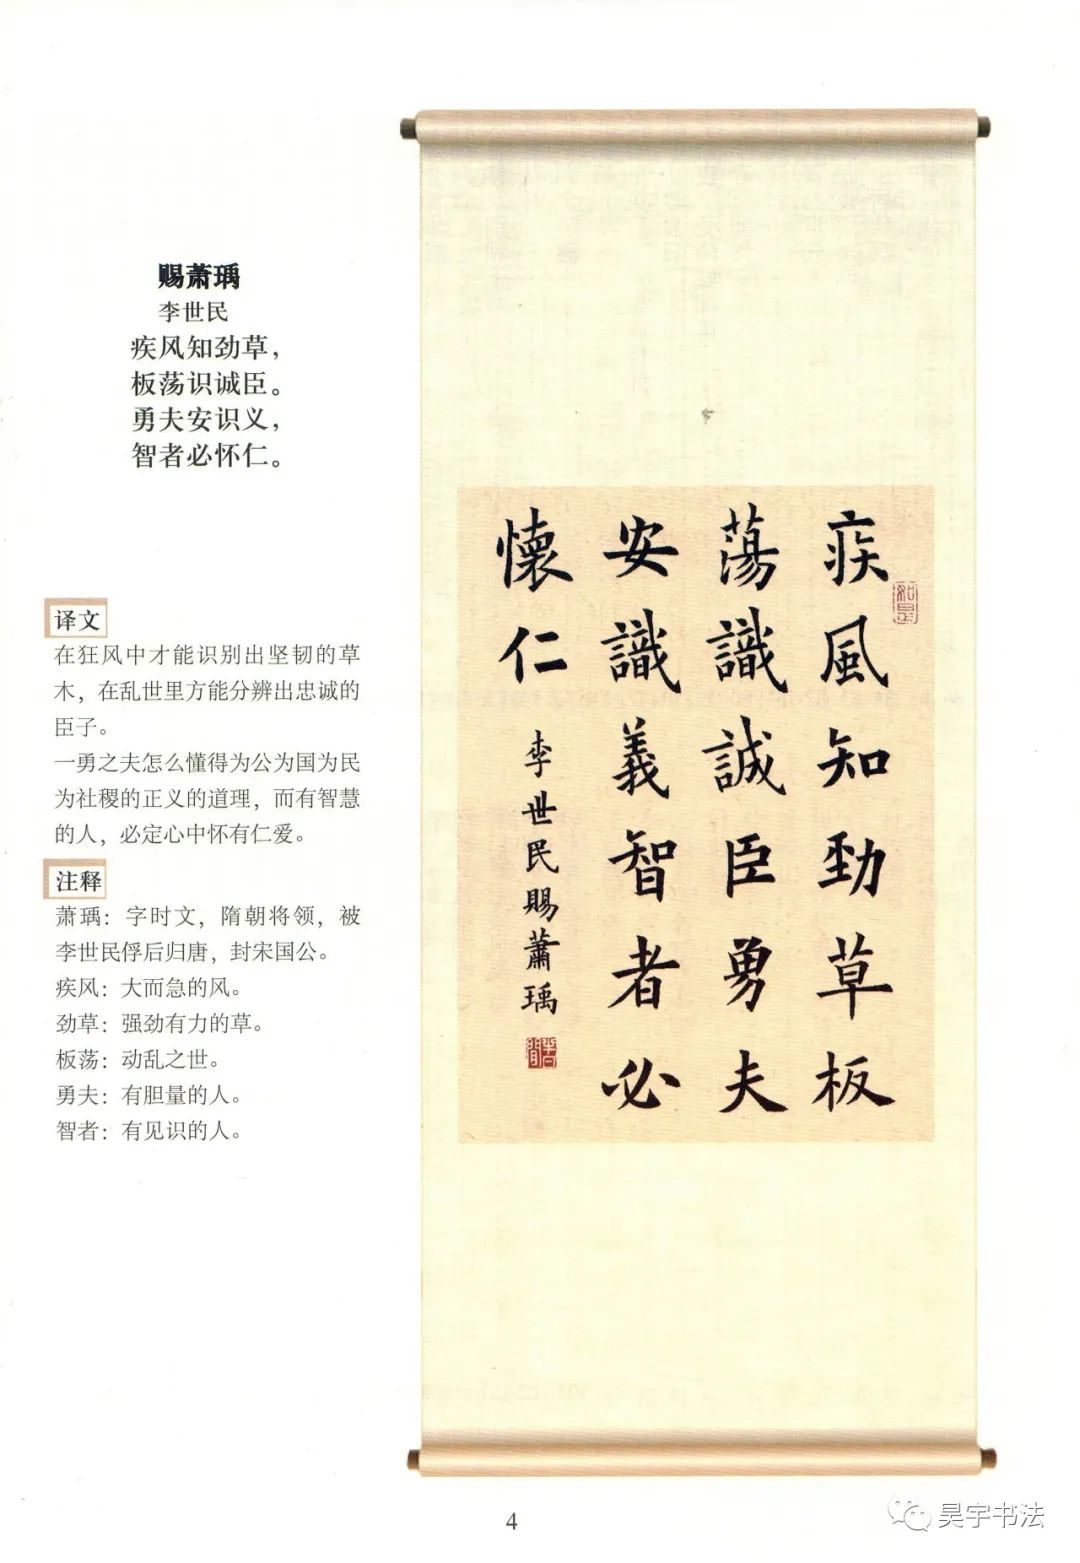 赐萧瑀
李世民
疾风知劲草，
板荡识诚臣。
勇夫安识义，
智者必怀仁。
译文
在狂风中才能识别出坚韧的草
木，在乱世里方能分辨出忠诚的
臣子。
一勇之夫怎么懂得为公为国为民
为社稷的正义的道理，而有智慧
的人，必定心中怀有仁爱。
注释
萧瑀：字时文，隋朝将领，被
李世民俘后归唐，封宋国公。
疾风：大而急的风。
劲草：强劲有力的草。
板荡：动乱之世。
勇夫：有胆量的人。
智者：有见识的人。
疾風知勁草板
蕩識誠臣勇夫
安識義智者必
懷仁
李世民賜蕭瑀
如是
4
昊宇书法